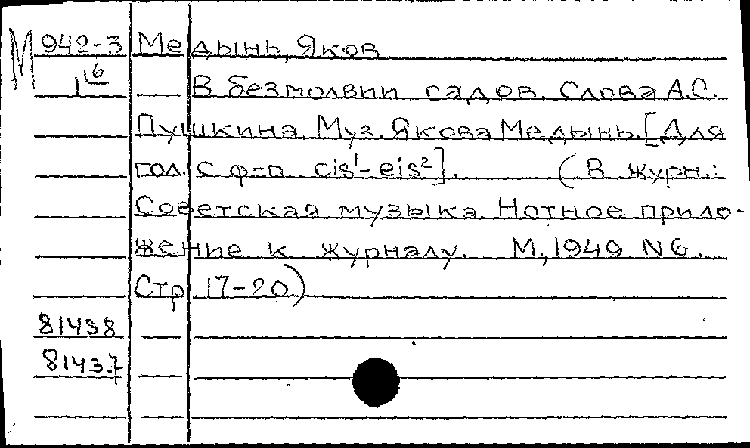 М 942-3 Медынь, Яков
1 16 В безмолвии садов. Слова А.С.
Пушкина. Муз. Якова Медынь. [Для
гол. с ф-п. cis¹-eis²]. (В журн.:
Советская музыка. Нотное прило-
жение к журналу. М., 1949 N6.
Стр. 17-20)
81438
81437